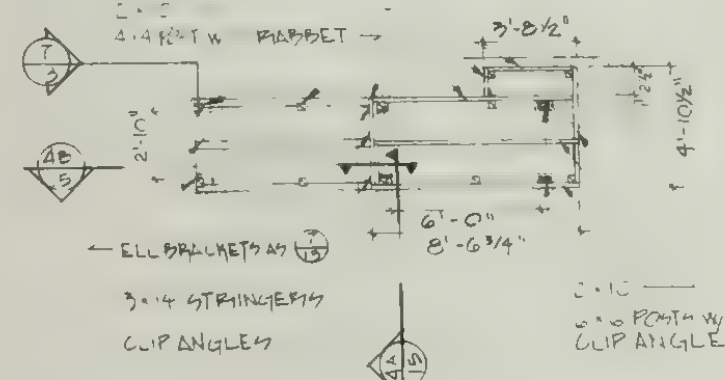 4×4 POST W RABBET →
3'-8½"
T
3
2'-10"
4'-10½"
4B
5
6'-0"
8'-6¾"
← ELL BRACKETS AS
3×14 STRINGERS
CLIP ANGLES
6×6 POSTS W/
CLIP ANGLE
4A
15